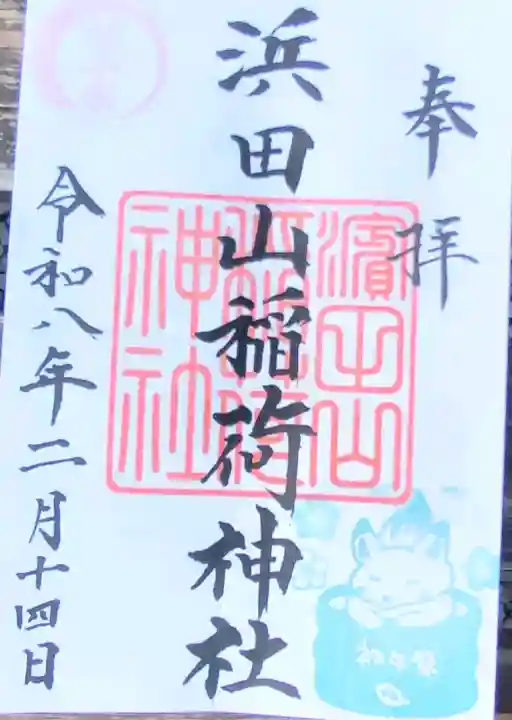 奉拝
浜田山稲荷神社
濱田山
稲荷
神社
令和八年二月十四日
初午祭